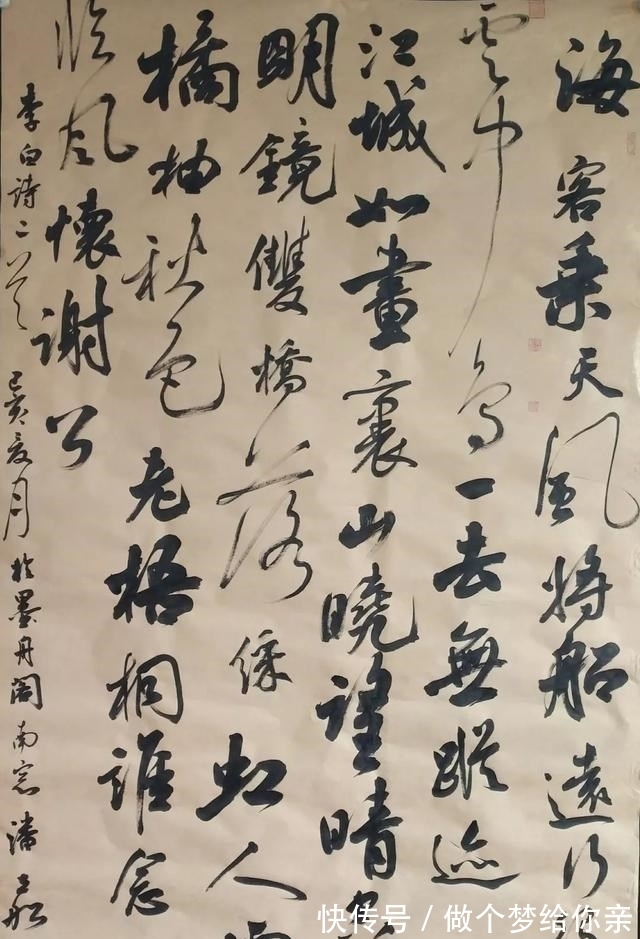 海客乘天風將船遠行
雲中鳥一去無蹤迹
江城如畫裏山曉望晴
明鏡雙橋落綵虹人
橘柚秋色老梧桐誰念
臨風懷謝公
李白詩二首 己亥夏月於墨舟閣南窓潘船
快传号/做个梦给你亲